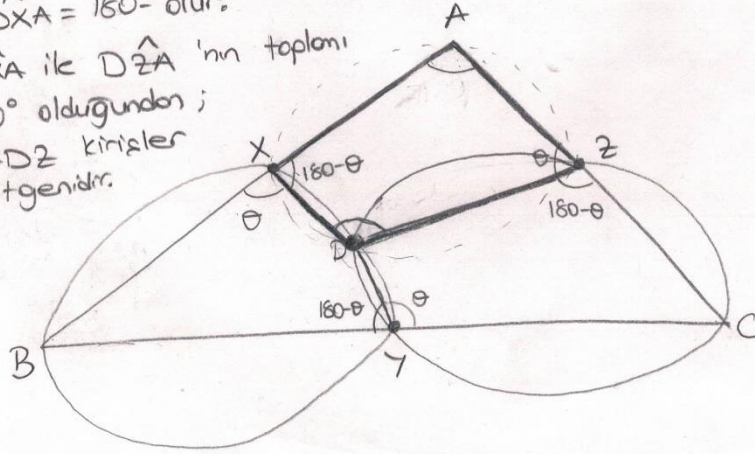 DXA = 180- olur.
A ile DẐA 'nın toplamı
0° olduğundan ;
-DZ kirişler
tgenidir.
A
X
180-θ
θ
Z
θ
180-θ
D
180-θ
θ
B
Y
C